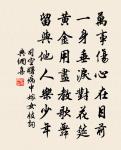 萬事傷心在目前
一身垂淚對花筵
黃金用盡教歌舞
留與他人樂少年
司空曙病中嫁女妓詞